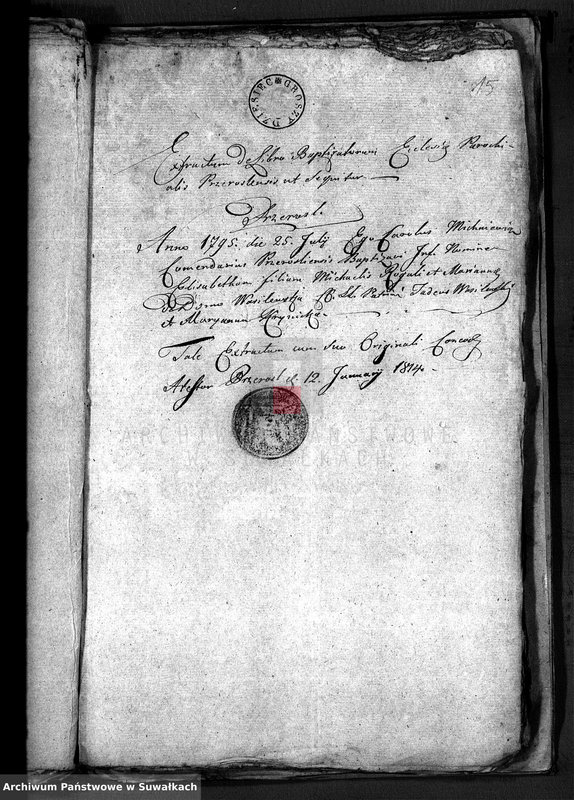 15
DZIESIĘC GROSZY
Extractum de Libro Baptizatorum Eclesiæ Parochi-
alis Przeroslensis ut Sequitur
Przerosl.
Anno 1795. die 25. Julij Ego Carolus Michniewicz
Comendarius Przeroslensis Baptizavi Inf. Nomine
Elisabetham filiam Michaelis Roguli et Marianna
de Domo Wasilewska CC. LL. Patrini Tadeus Wasilewski
et Maryanna
Tale Extractum cum suo Originali Concord
Atestor Przerosl d. 12. Januarij 1814.
ARCHIWUM PAŃSTWOWE
W SUWAŁKACH
Archiwum Państwowe w Suwałkach